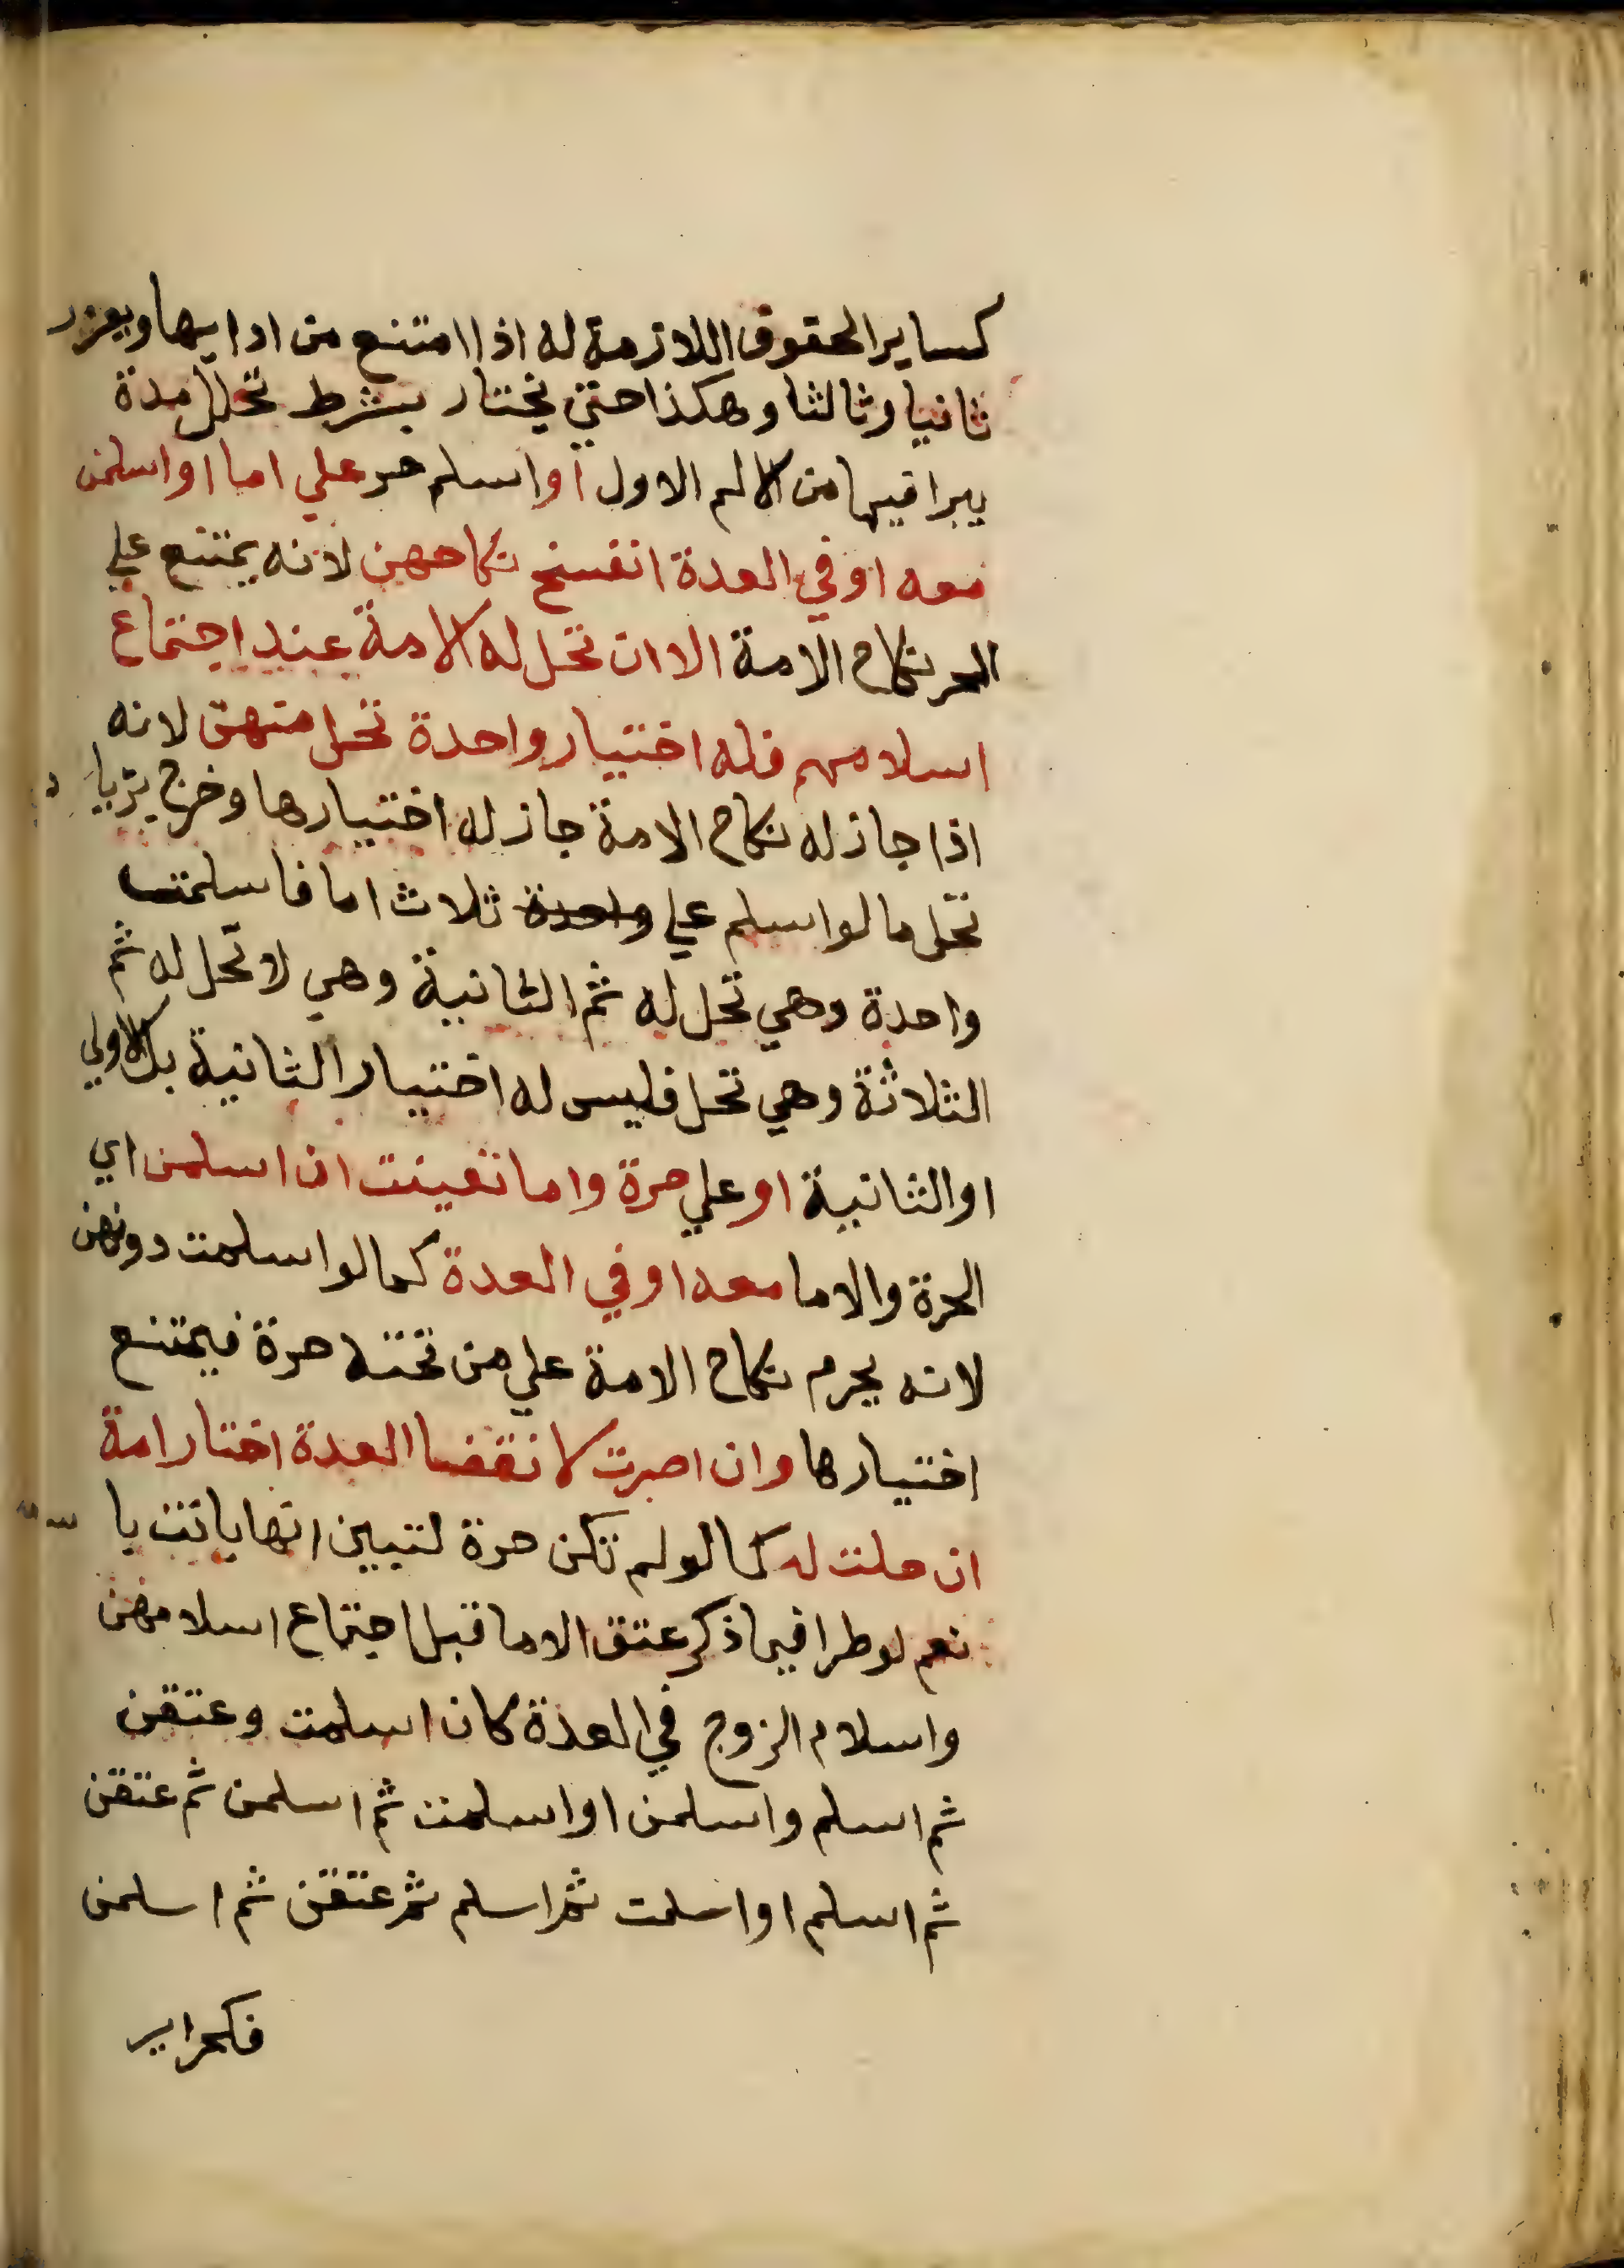 كساير الحقوق اللازمة له اذا امتنع من ادايها ويعزر
ثانيا وثالثا وهكذا حتي يختار بشرط تخلل مدة
يبرا فيها من الالم الاول او اسلم حر علي اما او اسلمن
معه او في العدة انفسخ نكاحهن لانه يمتنع علي
الحر نكاح الامة الا ان تحل له الامة عند اجتماع
اسلامهم فله اختيار واحدة تحل منهن لانه
اذا جاز له نكاح الامة جاز له اختيارها وخرج بزيا د
تحل ما لو اسلم علي واحدة ثلاث اما فاسلمت
واحدة وهي تحل له ثم الثانية وهي لا تحل له ثم
الثلاثة وهي تحل فليس له اختيار الثانية بل الاولي
او الثانية او علي حرة واما تعينت ان اسلمن اي
الحرة والاما معه او في العدة كما لو اسلمت دونهن
لانه يحرم نكاح الامة علي من تحته حرة فيمتنع
اختيارها وان اصرت لانقضا العدة اختار امة
ان حلت له كما لو لم تكن حرة لتبين انها بانت با
نعم لو طرا فيما ذكر عتق الاما قبل اجتماع اسلامهن
واسلام الزوج في العدة كان اسلمت وعتقن
ثم اسلم واسلمن او اسلمت ثم اسلمن ثم عتقن
ثم اسلم او اسلمت ثم اسلم ثم عتقن ثم اسلمن
فكحراير